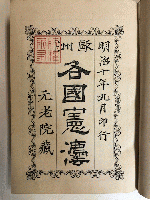 明治十年九月印行
歐州
各國憲法
元老院藏